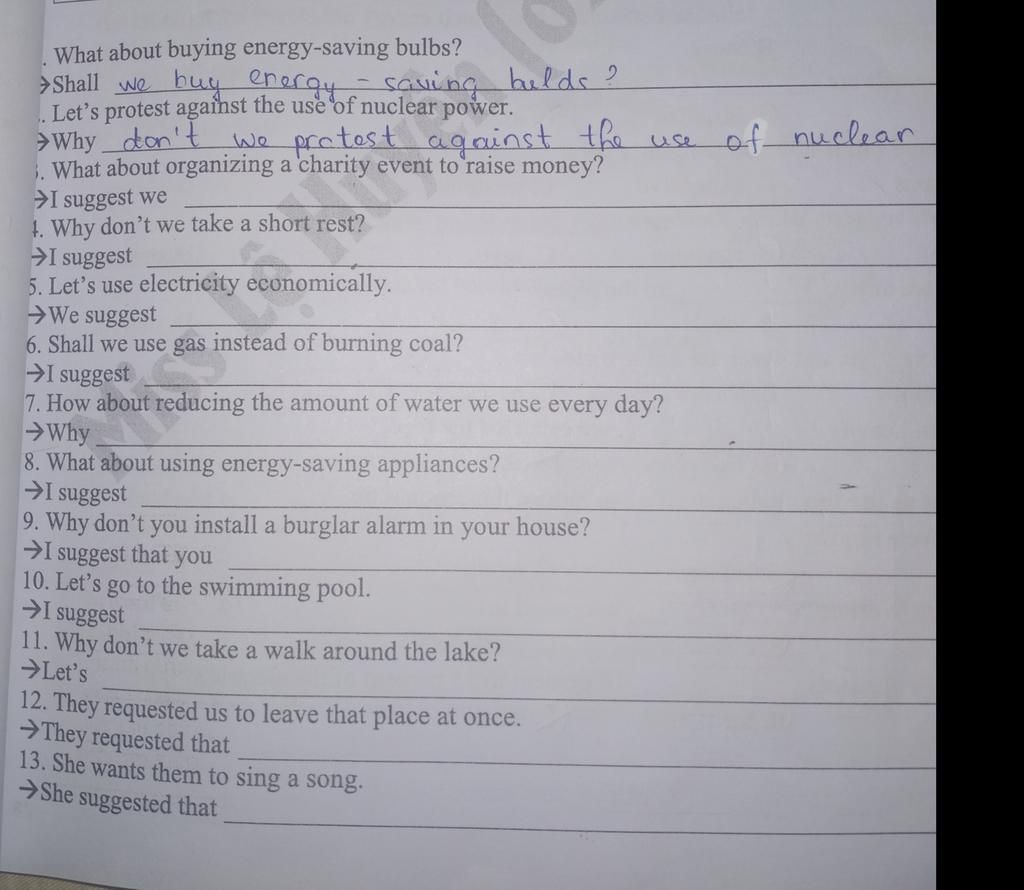 . What about buying energy-saving bulbs?
→Shall we buy energy - saving bulds ?
. Let's protest against the use of nuclear power.
→Why don't we protest against the use of nuclear
. What about organizing a charity event to raise money?
→I suggest we
4. Why don't we take a short rest?
→I suggest
5. Let's use electricity economically.
→We suggest
6. Shall we use gas instead of burning coal?
→I suggest
7. How about reducing the amount of water we use every day?
→Why
8. What about using energy-saving appliances?
→I suggest
9. Why don't you install a burglar alarm in your house?
→I suggest that you
10. Let's go to the swimming pool.
→I suggest
11. Why don't we take a walk around the lake?
→Let's
12. They requested us to leave that place at once.
→They requested that
13. She wants them to sing a song.
→She suggested that
Miss Lộ Huyền